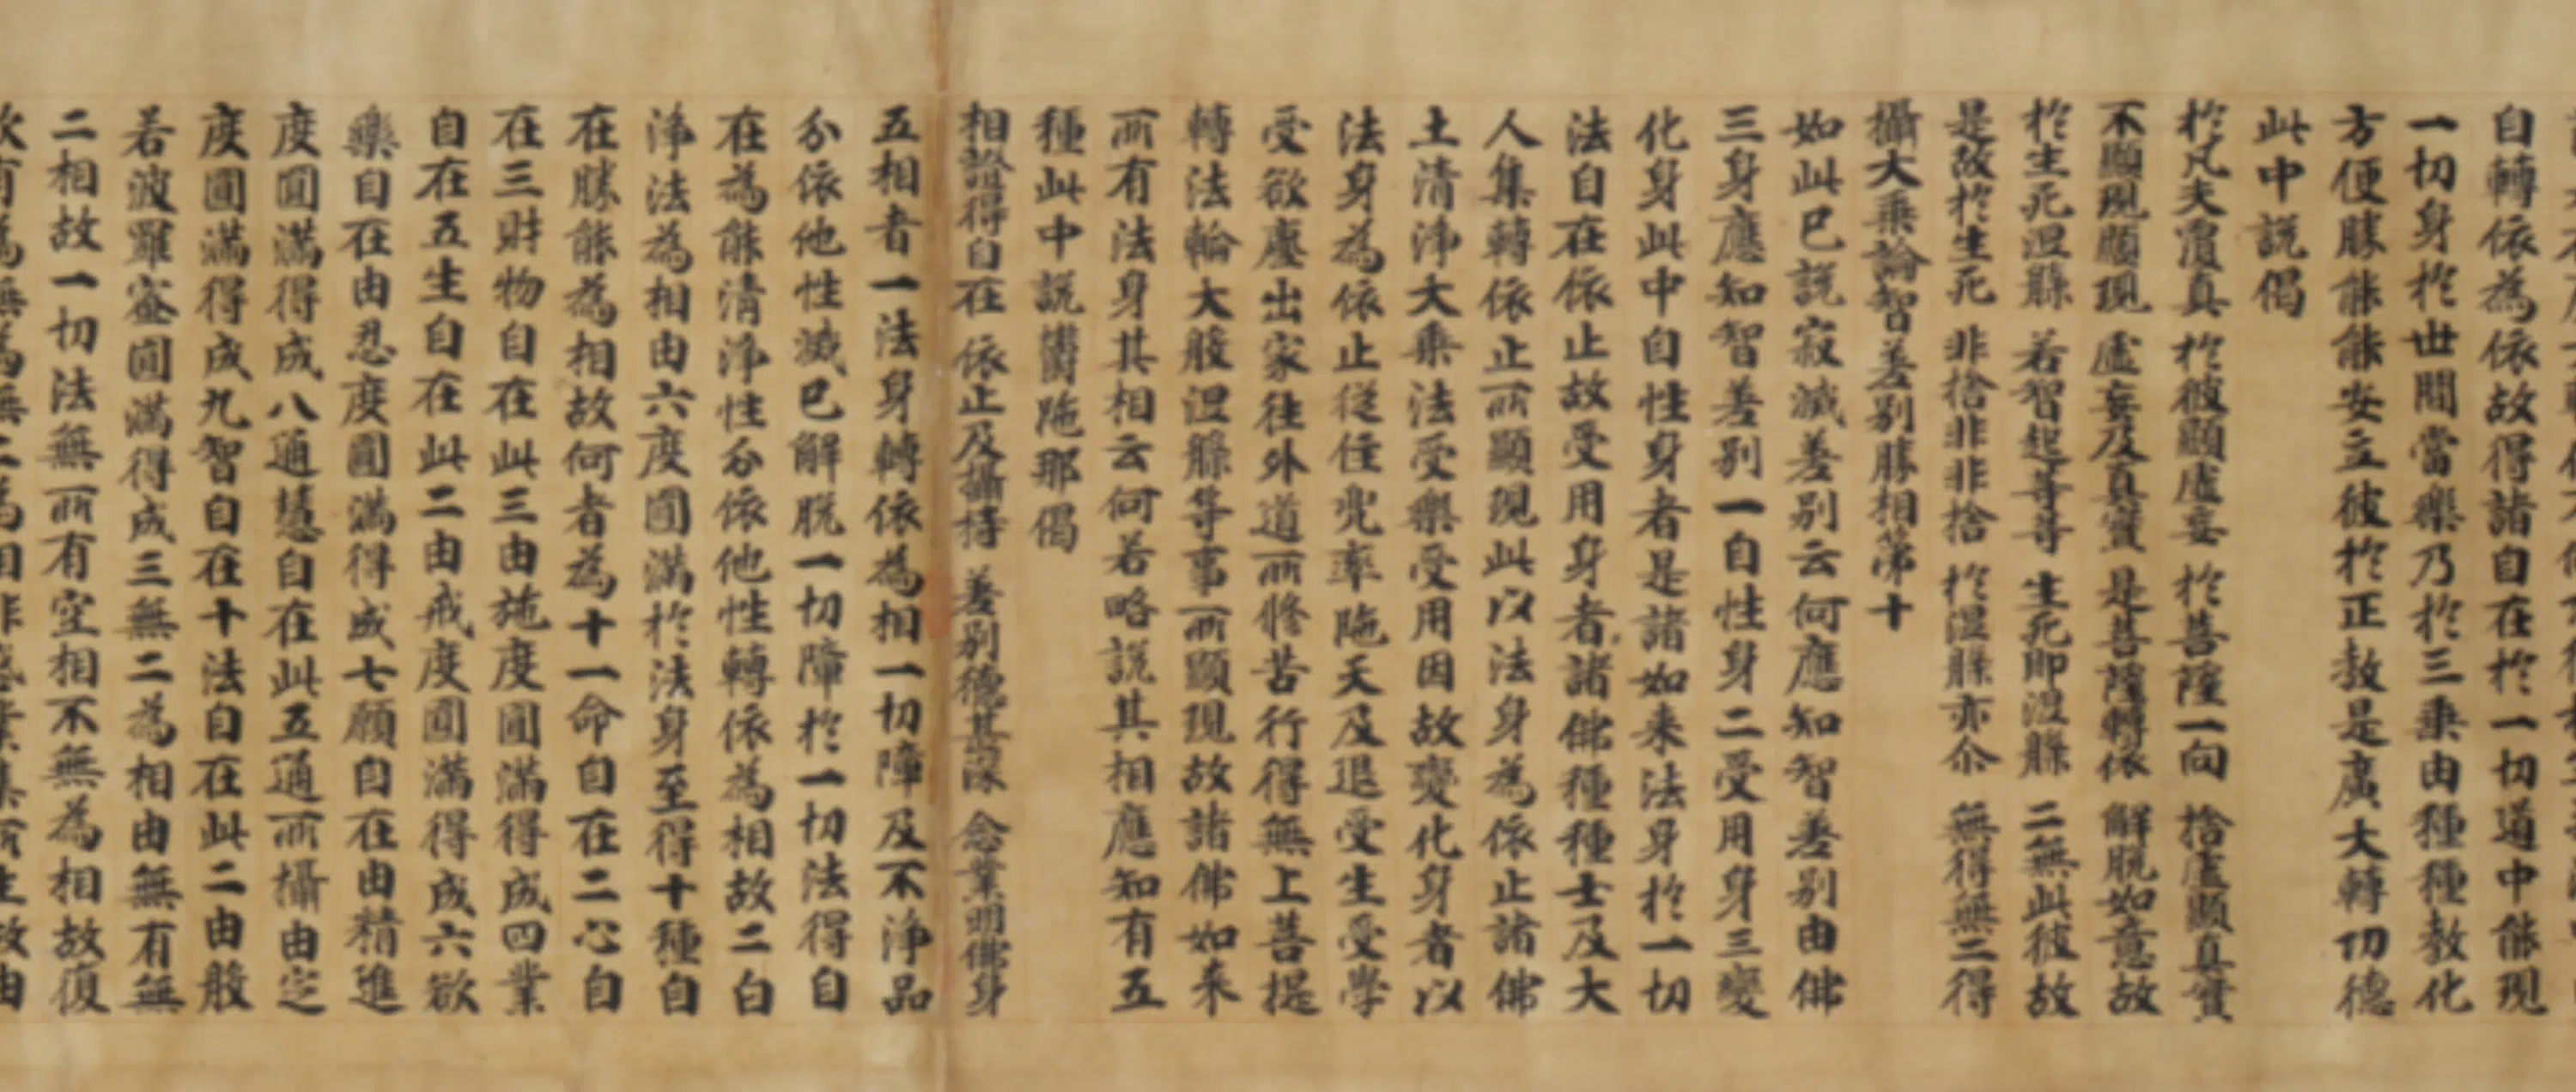 自轉依為依故得諸自在於一切道中能現
一切身於世間當樂乃於三乗由種種教化
方便勝能能安立彼於正教是廣大轉功德
此中說偈
於凡夫覆真 於彼顯虛妄 於菩薩一向 捨虛顯真實
不顯現顯現 虛妄及真實 是菩薩轉依 解脫如意故
於生死涅槃 若智起等等 生死即涅槃 二無此彼故
是故於生死 非捨非非捨 於涅槃亦尒 無得無三得
攝大乗論智差別勝相第十
如此已說寂滅差別云何應知智差別由佛
三身應知智差別一自性身二受用身三變
化身此中自性身者是諸如来法身於一切
法自在依止故受用身者諸佛種種士及大
人集轉依止所顯現此以法身為依止諸佛
土清淨大乗法受樂受用因故變化身者以
法身為依止從住兜率陁天及退受生受學
受欲塵出家往外道所修苦行得無上菩提
轉法輪大般涅槃等事所顯現故諸佛如来
所有法身其相云何若略說其相應知有五
種此中說欝陁那偈
相證得自在 依止及攝持 差別德甚深 念業明佛身
五相者一法身轉依為相一切障及不淨品
分依他性滅已解脫一切障於一切法得自
在為能清淨性分依他性轉依為相故二白
淨法為相由六度圓滿於法身至得十種自
在勝能為相故何者為十一命自在二心自
在三財物自在此三由施度圓滿得成四業
自在五生自在此二由戒度圓滿得成六欲
樂自在由忍度圓滿得成七願自在由精進
度圓滿得成八通慧自在此五通所攝由定
度圓滿得成九智自在十法自在此二由般
若波羅蜜圓滿得成三無二為相由無有無
二相故一切法無所有空相不無為相故復